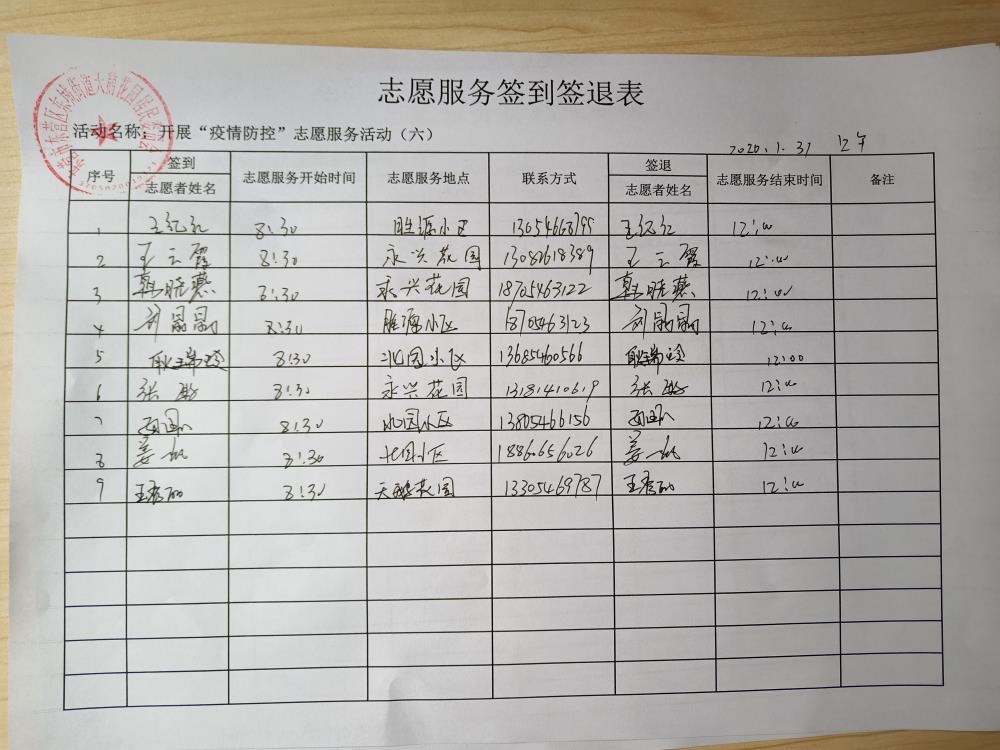 志愿服务签到签退表
活动名称：开展“疫情防控”志愿服务活动（六）
2020.1.31 上午
序号 签到 志愿者姓名 志愿服务开始时间 志愿服务地点 联系方式 签退 志愿者姓名 志愿服务结束时间 备注
1 王纪红 8:30 胜源小区 王纪红 12:00
2 王云霞 8:30 永兴花园 13082618389 王云霞 12:00
3 韩晓燕 8:30 永兴花园 18705463122 韩晓燕 12:00
4 刘晶晶 8:30 胜源小区 18705463123 刘晶晶 12:00
5 8:30 北园小区 13685460566 12:00
6 张 8:30 永兴花园 13181410619 张 12:00
7 8:30 北园小区 13805466156 12:00
8 姜帆 8:30 北园小区 18860656026 姜帆 12:00
9 王秀丽 8:30 天鹅花园 13305469787 王秀丽 12:00